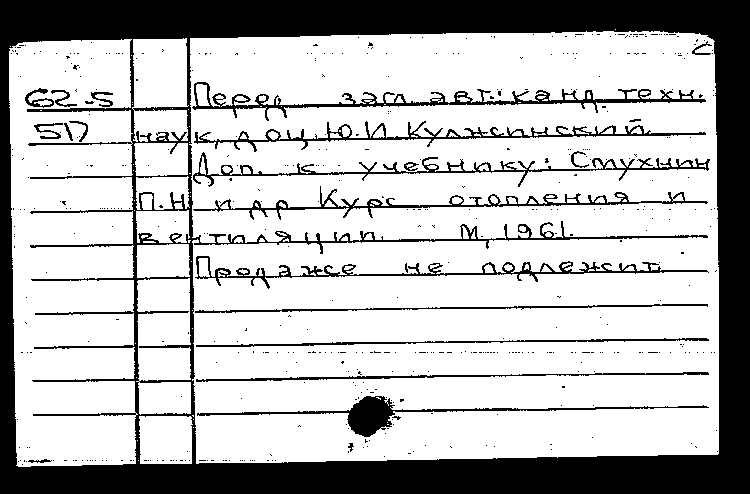 62-5 Перед загл. авт.: канд. техн.
517 наук, доц. Ю.И. Кулжсинский.
Доп. к учебнику: Смухнин
П.Н. и др Курс отопления и
вентиляции. М, 1961.
Продаже не подлежит.